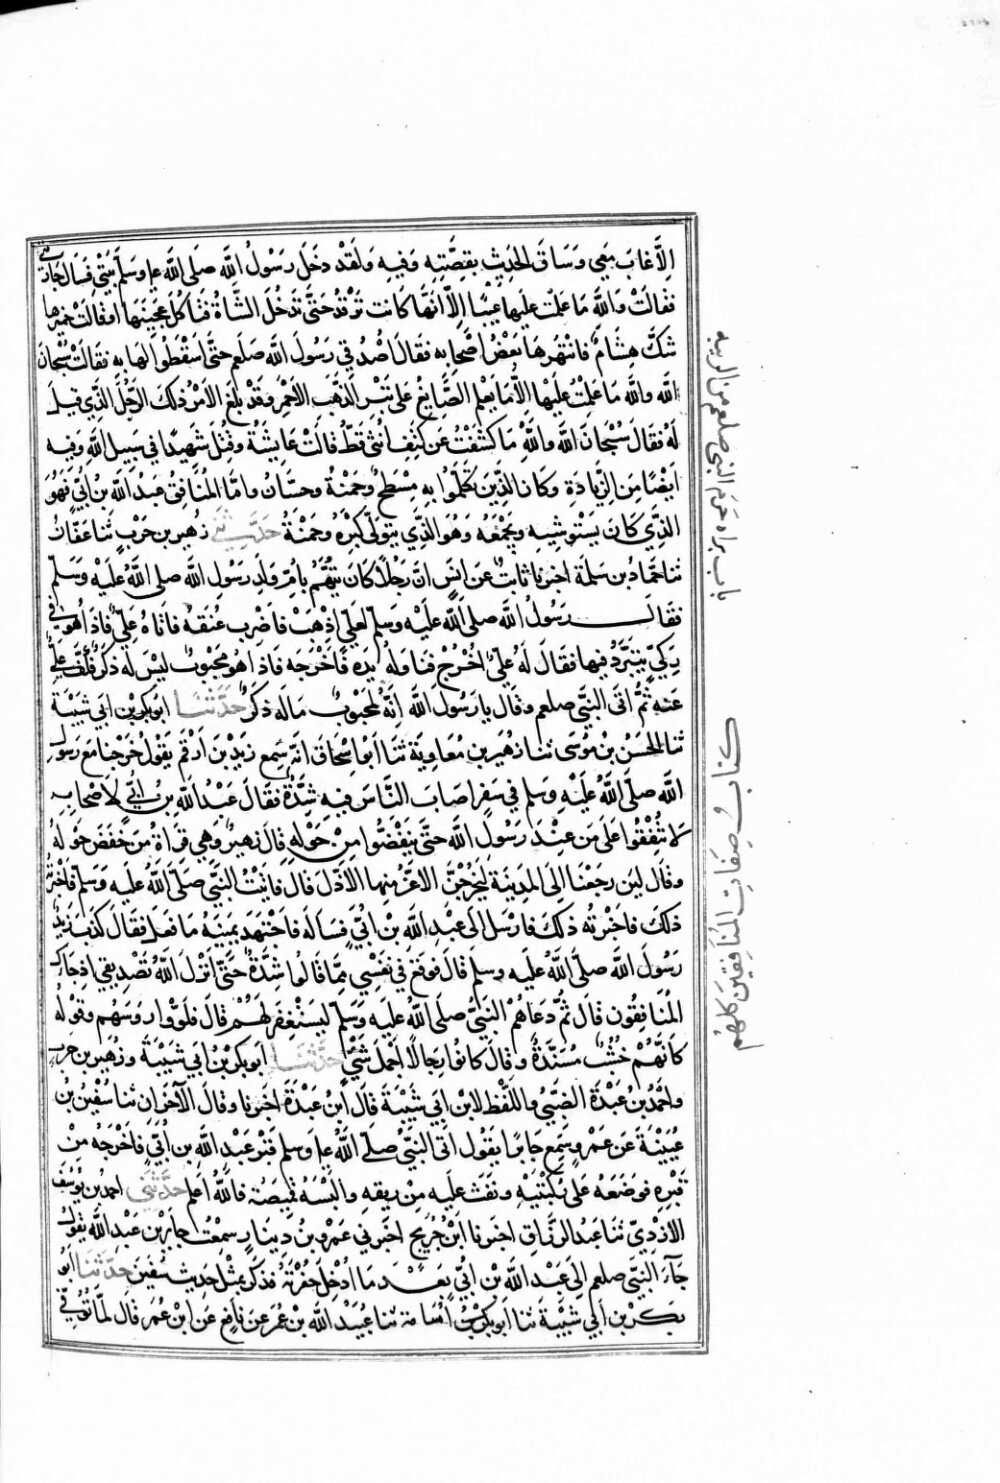 الاَّ غابَ معي وَسَاقَ الحَدِيث بِقِصَّتِهِ وَفيهِ وَلَقَدْ دَخَلَ رَسُولُ اللَّهِ صلى اللَّه عله وَسَلَّمَ بَيْتي فسَال جَارِيَتي
فَقالَتْ وَاللَّهِ مَا عَلِمْت علَيهَا عَيْبًا اِلاَّ اَنَّهَا كَانت تَرْقُدُ حَتَّى تَدخُلَ الشَّاةُ فَتَاكُلَ عَجِينَهَا اوقالَتْ خميرها
شَكَّ هِشَامٌ فَانتَهَرهَا بَعْضُ اصْحَابِه فقالَ اصْدُقي رَسُولَ اللَّه صَلعم حَتَّى اَسْقَطُوا لهَا بِه فقالَتْ سُبْحَانَ
اللَّه واللَّهِ مَا عَلِمْتُ عليْهَا اِلاَّ مَا يَعْلم الصَّايغُ على تِبْرِ الذَّهَبِ الاَحْمَرِ وَقَدْ بلَغَ الاَمْرُ ذلكَ الرَّجُلَ الَّذِي قيلَ
لَهُ فقالَ سُبْحَانَ اللَّه واللَّهِ مَا كشَفْتُ عَن كنَفِ اُنثى قَطُّ قالَتْ عَايشَةُ وَقُتِلَ شَهِيدًا في سَبيلِ اللَّهِ وَفيهِ
ايْضًا مِن الزّيَادَةِ وَكانَ الَّذِينَ تَكَلَّمُوا بِهِ مِسْطَحٌ وَحَمْنَةُ وَحَسَّان وَامَّا المُنَافِقُ عَبدُ اللَّه بْنُ اُبَيٍّ فهُوَ
الَّذِي كَانَ يَسْتَوشِيهِ وَيَجْمَعُه وَهُوَ الَّذِي يتَوَلَّى كِبْرَهُ وَحَمْنَةُ حَدَّثَنِي زهَير بن حَرْبٍ ثنا عَفَّانُ
ثنا حَمَّادُ بن سَلَمَةَ اخبرنا ثابتٌ عَن انسٍ انَّ رَجُلاً كانَ يُتَّهَمُ بِامِّ وَلَدِ رَسُولِ اللَّه صلى اللَّهُ عَلَيْهِ وَسَلَّم
فقَالَ رَسُولُ اللَّه صلى اللَّه علَيْه وَسَلَّم لِعَليٍّ اذْهَبْ فاضْرِب عُنُقَهُ فاتَاهُ عَلِيٌّ فاذَا هُوَ في
رَكيٍّ يتَبَرَّدُ فيها فقالَ لَهُ عَليٌّ اخْرُجْ فنَاوَلَهُ يَدَهُ فَاخْرَجَه فَاذا هُوَ مَجْبُوبٌ ليسَ لَه ذكَرٌ فكَفَّ عَليٌّ
عَنهِ ثُمَّ اتى النَّبيَّ صلعم وَقالَ يا رَسُولَ اللَّه اِنَّهُ لَمجْبُوبٌ مَا لَه ذَكَرٌ حَدَّثَنَا ابُوبكر بن ابي شَيْبَةَ
ثنا الحسَنُ بن مُوسَى ثنا زهَير بن مُعَاوِيَةَ ثَنَا ابُوا اِسْحَاق انه سَمِع زَيْدَ بْنَ اَرْقَم يَقُولُ خرَجْنا مَعَ رَسُولِ
اللَّه صَلّى اللَّهُ عَلَيْهِ وَسلم في سَفَرٍ اصَابَ النَّاسَ فيهِ شِدَّةٌ فقالَ عَبْدُ اللَّه بن اُبَيٍّ لاَصْحَابِه
لاَ تُنْفِقُوا عَلَى مَن عِنْدَ رَسُولِ اللَّه حَتَّى يَنْفَضُّوا مِنْ حَوْلِهِ قالَ زهَيرٌ وَهي قرَاةُ مَن خَفَضَ حَولهُ
وقالَ لين رجَعْنا الَى المدِينَةِ ليُخْرِجَنَّ الاعَزُّ مِنهَا الاَذَلَّ قالَ فاتَيْتُ النَّبيَّ صَلَّى اللَّهُ عَلَيهِ وَسَلّم فَاخْبَرْتُهُ
ذلكَ فَاخبرْتهُ ذلكَ فارسَلَ الَى عَبدِ اللَّه بن اُبَيٍّ فَسَالَهُ فاجْتهَدَ يمينَهُ مَا فعَلَ فقالَ كَذبَ زَيْدٌ
رَسُولَ اللَّهِ صَلَّى اللَّهُ عَلَيهِ وَسلم قالَ فوَقعَ في نفسِي مِمَّا قالُوا شِدَّةٌ حَتَّى انْزلَ اللَّهُ تَصْدِيقي اِذَا جَاءكَ
المُنَافِقُون قالَ ثُمَّ دَعَاهُمْ النَّبِيُّ صَلى اللَّهُ عَلَيه وَسَلَّم لِيَستَغْفِرَ لهُمْ قالَ فلَوَّوا رؤسَهُم وَقوْلُهُ
كاَنَّهُمْ خُشُبٌ مُسَنَّدَةٌ وقالَ كانوا رِجَالاً اجْمَلَ شَيْءٍ حَدَّثَنَا ابُوبَكر بْنُ ابي شَيْبَةَ وزُهَير بن حَرب
واحْمَدُ بنُ عَبْدَةَ الضَّبِّيُّ وَاللَّفْظُ لابْنِ ابي شَيْبَةَ قالَ ابنُ عَبْدَةَ اخبرنا وقالَ الآخرَانِ ثنا سُفْيٰنُ بْن
عُيَيْنَةَ عَن عَمْرٍو سَمِع جَابرًا يَقُول اتَى النَّبيُّ صلّى اللَّهُ عله وَسلم قبْرَ عَبْدِ اللَّه بن اُبَيٍّ فاخْرَجَهُ مِنْ
قَبْرِهِ فوَضعَهُ عَلَى رُكْبتَيْهِ ونفَثَ علَيهِ مِنْ ريقِهِ وَالْبَسَهُ قَمِيصَهُ فاللَّهُ اعْلم حَدَّثَنِي احمدُ بن يُوسُفَ
الاَزْدِيُّ ثَنَا عَبدُ الرَّزَّاق اخبرنا ابْنُ جُرَيج اخبرني عَمْرُو بنُ دِينَار سَمِعْتُ جابرَ بْن عَبْد اللَّه يَقُولُ
جَآءَ النَّبيُّ صلعم الَى عَبدِ اللَّه بن ابيّ بَعْدَ مَا اُدْخِلَ حُفْرَتَهُ فذَكَرَ بمِثلِ حَدِيثِ سُفيٰنَ حَدَّثَنَا ابُو
بَكر بن ابي شَيْبَةَ ثنا ابُو بكر اُسَامَةَ ثنا عُبَيْد اللَّه بن عُمَرَ عَن نَافِعٍ عَن ابْن عُمَرَ قَالَ لمَّا تُوُفّيَ
باب براة حرم النبى صلعم من الريبه
كتاب وصِفَاتِ المُنافِقينَ كلهُم